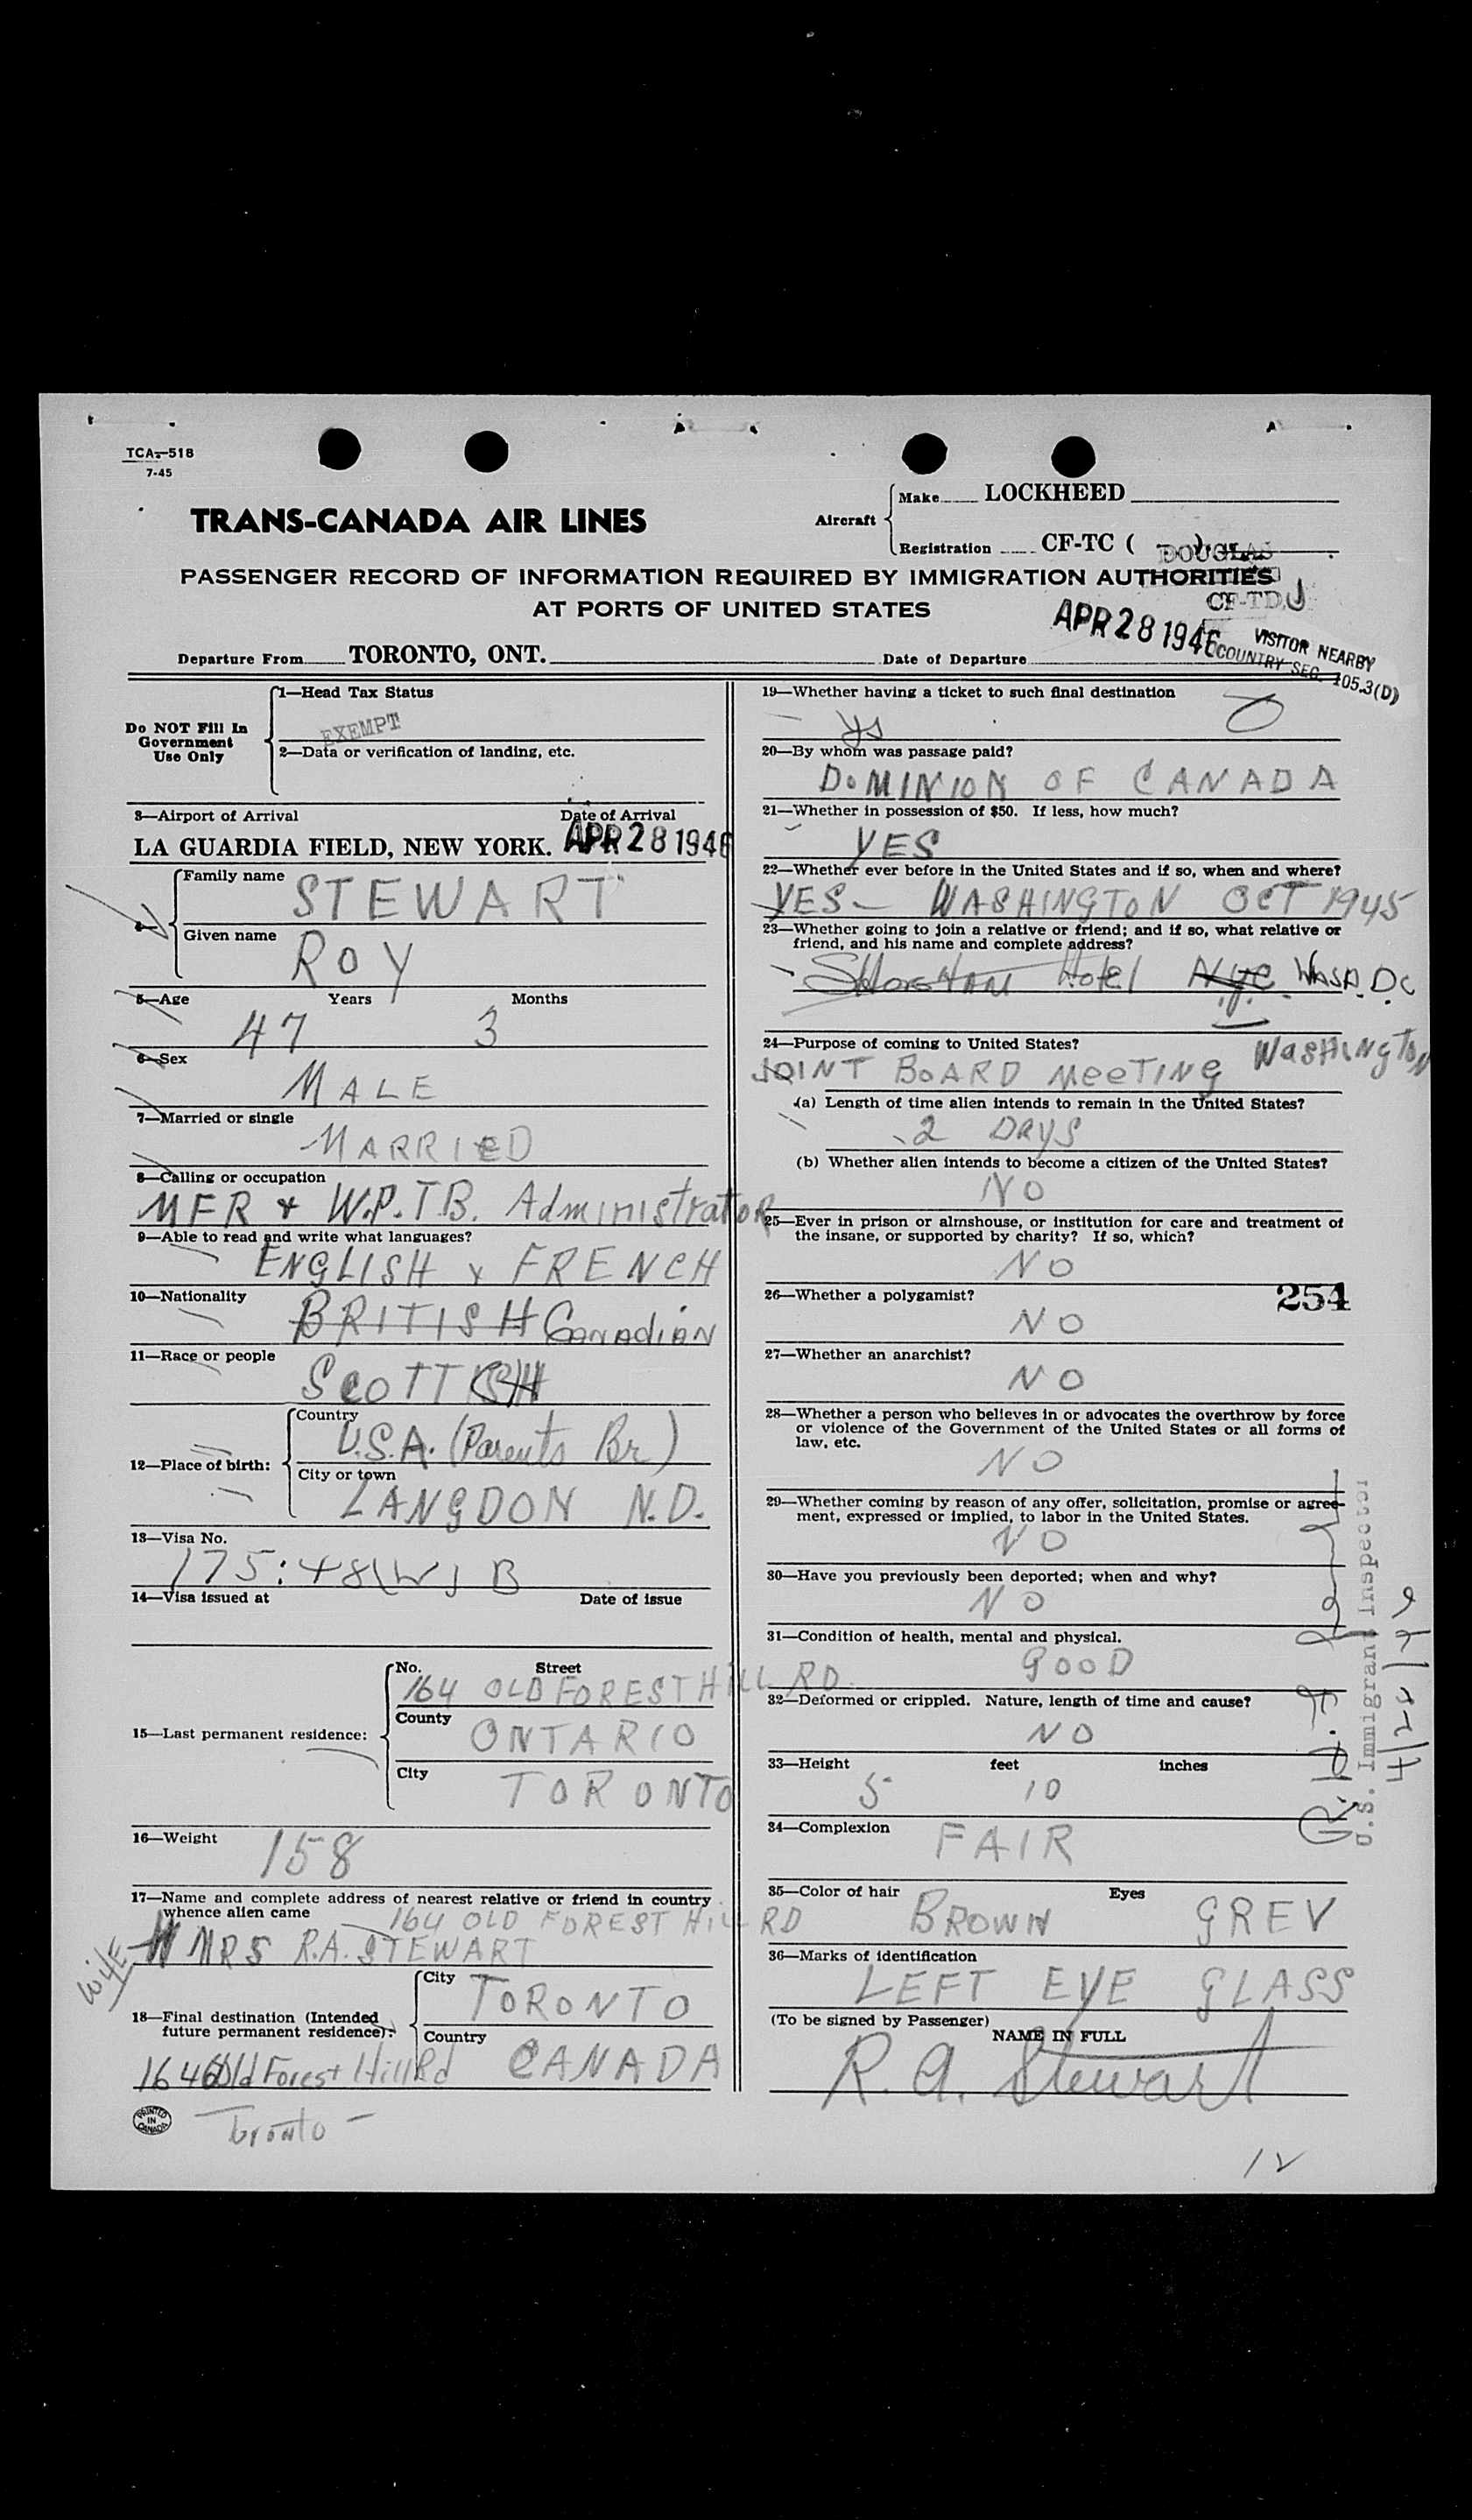 TCA-518
7-45
TRANS-CANADA AIR LINES
Aircraft
Make LOCKHEED
Registration CF-TC ( )
DOUGLAS
CF-TDJ
PASSENGER RECORD OF INFORMATION REQUIRED BY IMMIGRATION AUTHORITIES
AT PORTS OF UNITED STATES
APR 28 1946
VISITOR NEARBY
COUNTRY SEC. 105.3(D)
Departure From TORONTO, ONT. Date of Departure
Do NOT Fill In
Government
Use Only
1—Head Tax Status
EXEMPT
2—Data or verification of landing, etc.
3—Airport of Arrival Date of Arrival
LA GUARDIA FIELD, NEW YORK. APR 28 1946
Family name STEWART
Given name ROY
5—Age Years Months
47 3
6—Sex
MALE
7—Married or single
MARRIED
8—Calling or occupation
MFR & W.P.T.B. Administrator
9—Able to read and write what languages?
ENGLISH & FRENCH
10—Nationality
BRITISH Canadian
11—Race or people
SCOTTISH
12—Place of birth:
Country
U.S.A. (Parents Br)
City or town
LANGDON N.D.
13—Visa No.
175:48(W) B
14—Visa issued at Date of issue
15—Last permanent residence:
No. Street
164 OLD FOREST HILL RD
County
ONTARIO
City
TORONTO
16—Weight 158
17—Name and complete address of nearest relative or friend in country
whence alien came
164 OLD FOREST HILL RD
wife MRS R.A. STEWART
18—Final destination (Intended
future permanent residence):
City
TORONTO
Country
CANADA
164 Old Forest Hill Rd
Toronto
PRINTED
IN
CANADA
19—Whether having a ticket to such final destination
yes
20—By whom was passage paid?
DOMINION OF CANADA
21—Whether in possession of $50. If less, how much?
YES
22—Whether ever before in the United States and if so, when and where?
YES — WASHINGTON OCT 1945
23—Whether going to join a relative or friend; and if so, what relative or
friend, and his name and complete address?
Shoreham Hotel Nyc Wash. D.C.
24—Purpose of coming to United States?
JOINT BOARD MEETING WASHINGTON
(a) Length of time alien intends to remain in the United States?
2 DAYS
(b) Whether alien intends to become a citizen of the United States?
NO
25—Ever in prison or almshouse, or institution for care and treatment of
the insane, or supported by charity? If so, which?
NO
26—Whether a polygamist? 254
NO
27—Whether an anarchist?
NO
28—Whether a person who believes in or advocates the overthrow by force
or violence of the Government of the United States or all forms of
law, etc.
NO
29—Whether coming by reason of any offer, solicitation, promise or agree-
ment, expressed or implied, to labor in the United States.
NO
30—Have you previously been deported; when and why?
NO
31—Condition of health, mental and physical.
GOOD
32—Deformed or crippled. Nature, length of time and cause?
NO
33—Height feet inches
5 10
34—Complexion FAIR
35—Color of hair BROWN Eyes GREY
36—Marks of identification
LEFT EYE GLASS
(To be signed by Passenger)
NAME IN FULL
R. A. Stewart
12
U.S. Immigrant Inspector